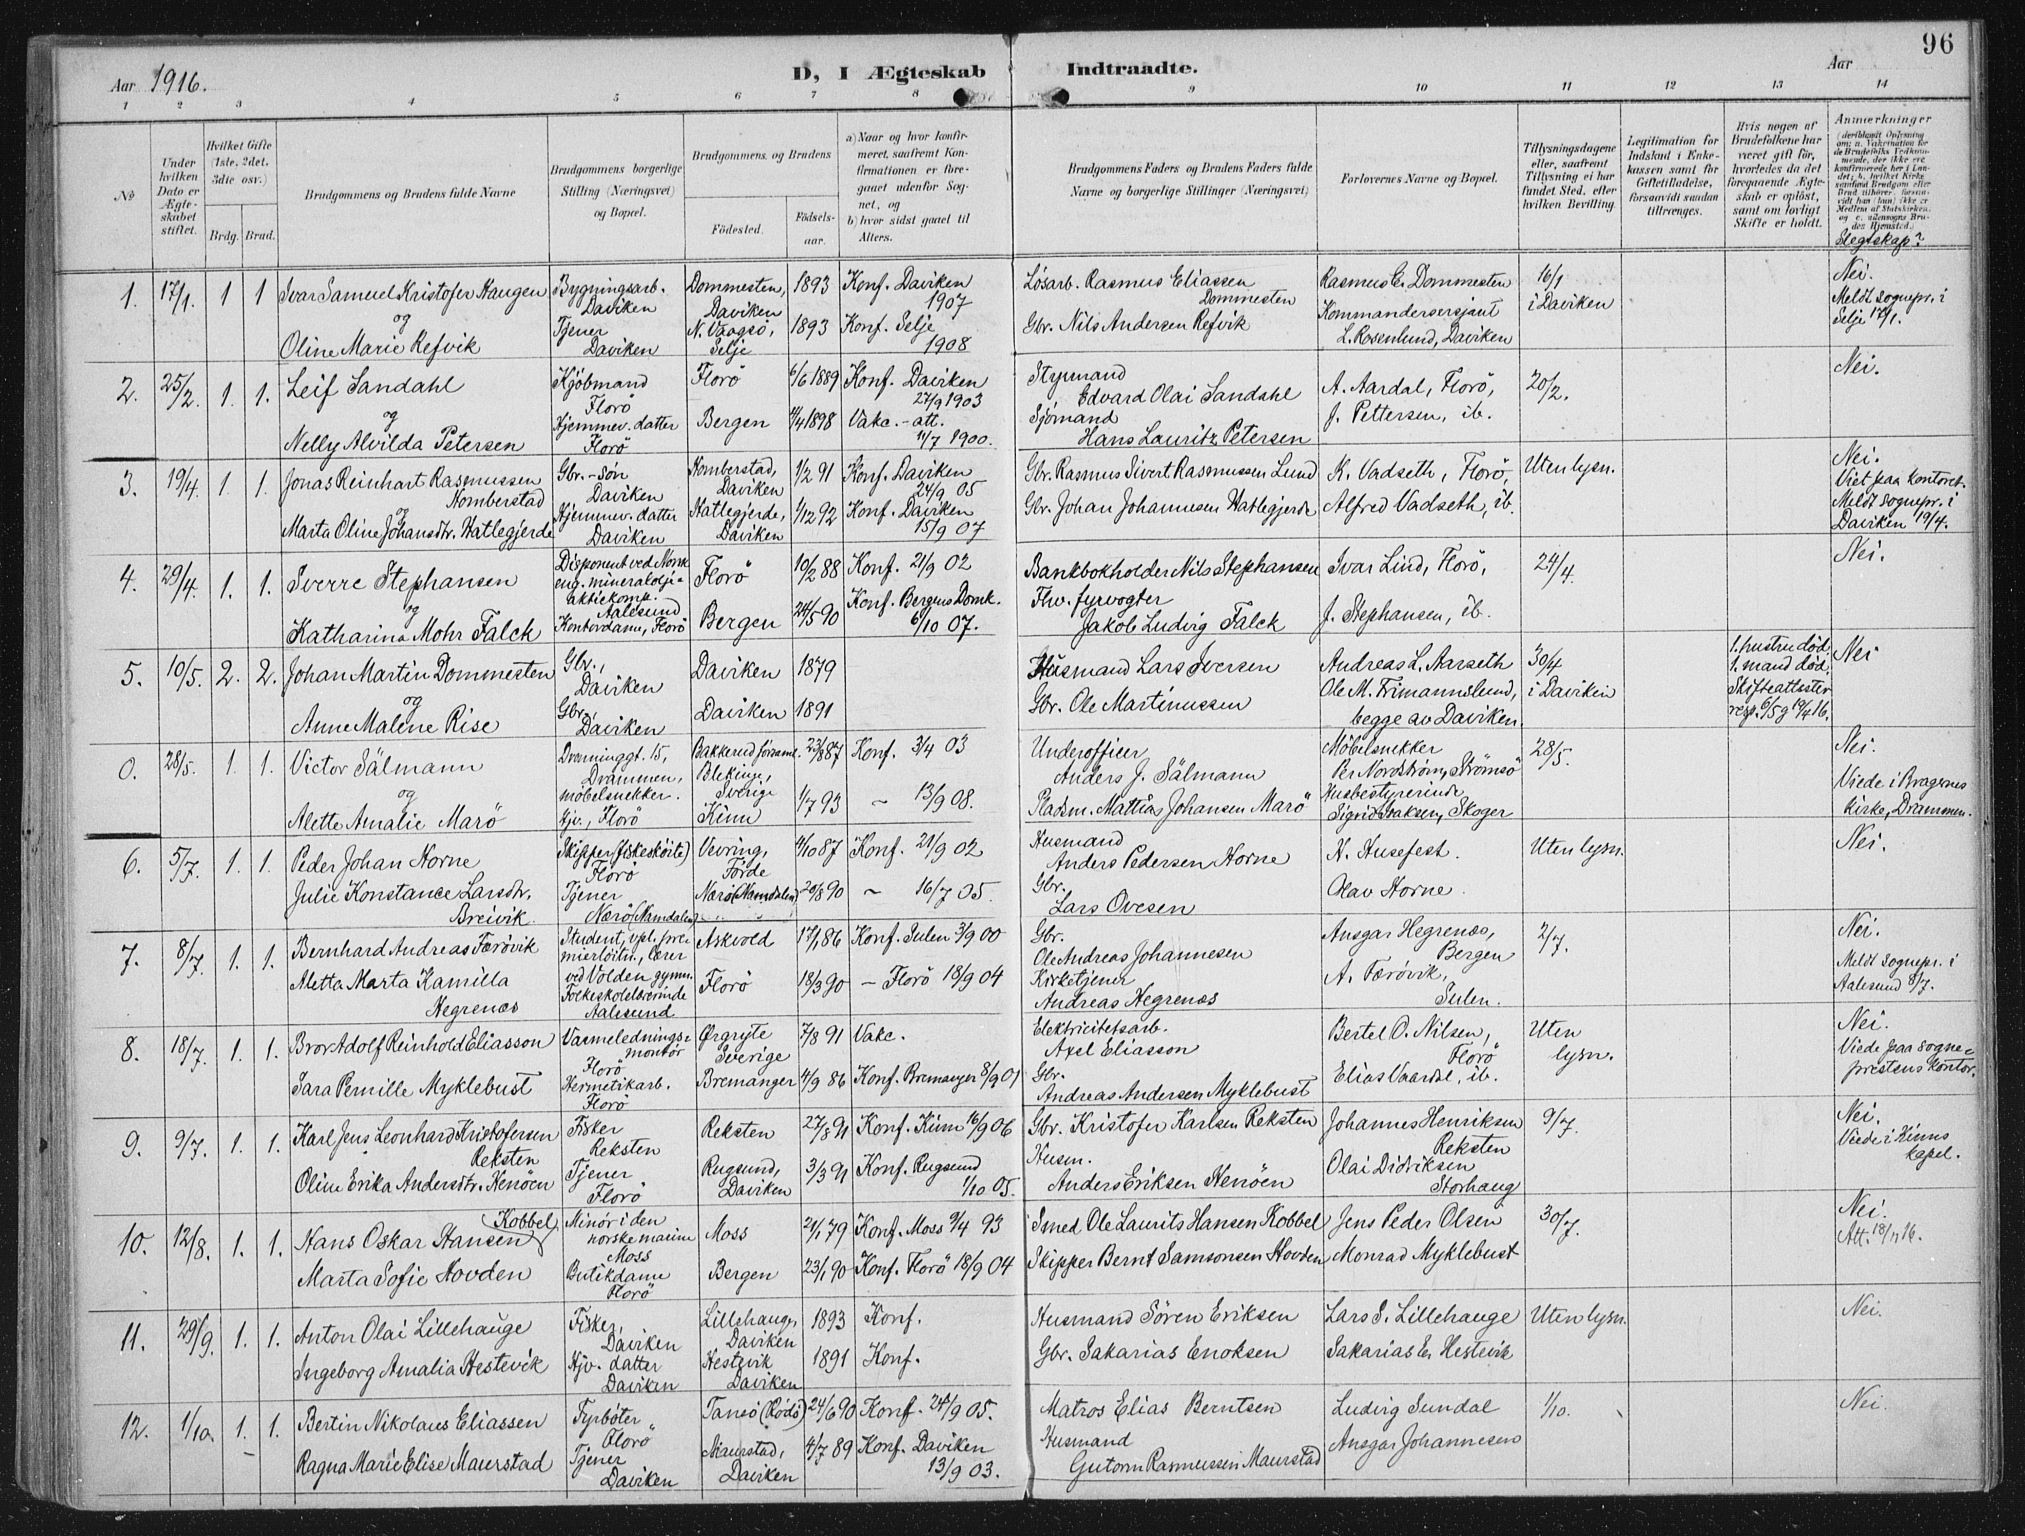 96
Aar 1916. D, I Ægteskab Indtraadte. Aar
1 2 3 4 5 6 7 8 9 10 11 12 13 14
№
Under hvilken Dato er Ægteskabet stiftet.
Hvilket Gifte (1ste, 2det, 3die osv.)
Brdg. Brud.
Brudgommens og Brudens fulde Navne
Brudgommens borgerlige Stilling (Næringsvei) og Bopæl.
Brudgommens og Brudens
Födested. Födselsaar.
a) Naar og hvor konfirmeret, saafremt Konfirmationen er foregaaet udenfor Sognet, og
b) hvor sidst gaaet til Alters.
Brudgommens Faders og Brudens Faders fulde Navne og borgerlige Stillinger (Næringsvei)
Forlovernes Navne og Bopæl.
Tillysningsdagene eller, saafremt Tillysning ei har fundet Sted, efter hvilken Bevilling.
Legitimation for Indskud i Enkekassen samt for Giftetilladelse, forsaavidt saadan tiltrænges.
Hvis nogen af Brudefolkene har været gift før, hvorledes da det foregaaende Ægteskab er oplöst, samt om lovligt Skifte er holdt.
Anmerkninger
Slegtskap?
1. 17/1. 1 1 Ivar Samuel Kristofer Haugen
og
Oline Marie Refvik
Bygningsarb.
Daviken
Tjener
Daviken
Dommesten,
Daviken
N. Vaagsö,
Selje
1893
1893
Konf. Daviken
1907
Konf. Selje
1908
Løsarb. Rasmus Eliassen
Dommesten
Gbr. Nils Andersen Refvik
Rasmus E. Dommesten
Kommandersersjant
L. Rosenlund, Daviken
16/1
i Daviken
Nei.
Meldt sognepr. i
Selje 17/1.
2. 25/2. 1. 1. Leif Sandahl
og
Nelly Alvilda Petersen
Kjöbmand
Florö
Hjemmev. datter
Florö
Florö
Bergen
6/6 1889
4/4 1898
Konf. Daviken
27/9 1903
Vakc.-att.
11/7 1900.
Styrmand
Edvard Olai Sandahl
Sjömand
Hans Lauritz Petersen
A. Aardal, Florö,
J. Pettersen, ib.
20/2.
Nei.
3. 19/4. 1. 1. Jonas Reinhart Rasmussen
Homberstad
og
Marta Oline Johansdtr. Hatlegjerde
Gbr.-sön
Daviken
Hjemmev. datter
Daviken
Homberstad,
Daviken
Hatlegjerde,
Daviken
1/2 91
1/12 92
Konf. Daviken
24/9 05
Konf. Daviken
15/9 07
Gbr. Rasmus Sivert Rasmussen Lund
Gbr. Johan Johannesen Hatlegjerde
K. Vadseth, Florö,
Alfred Vadseth, ib.
Uten lysn.
Nei.
Viet paa kontoret.
Meldt sognepr. i
Daviken 19/4.
4. 29/4. 1. 1. Sverre Stephansen
og
Katharina Mohr Falck
Disponent ved Norsk
eng. mineralolje=
aktiekomp.
Aalesund
Kontordame, Florö
Florö
Bergen
10/2 88
24/5 90
Konf. 21/9 02
Konf. Bergens Domk.
6/10 07.
Bankbokholder Nils Stephansen
Fhv. fyrvogter
Jakob Ludvig Falck
Ivar Lind, Florö,
J. Stephansen, ib.
24/4.
Nei.
5. 10/5. 2. 2. Johan Martin Dommesten
og
Anne Malene Rise
Gbr.,
Daviken
Gbr.,
Daviken
Daviken
Daviken
1879
1891
Husmand Lars Iversen
Gbr. Ole Martinussen
Andreas L. Aarseth
Ole M. Frimannslund,
begge av Daviken.
30/4
i Daviken
1. hustru död.
1. mand död.
Skifteattester
resp. 6/5 og 19/4 16.
Nei
0. 28/5. 1. 1. Victor Sälmann
og
Alette Amalie Marö
Dronninggt. 15,
Drammen,
möbelsnekker.
Hjv., Florö
Bakkerud församl.
Blekinge,
Sverige
Kinn
23/8 87
1/7 93
Konf. 3/4 03
~ 13/9 08.
Underofficer
Anders J. Sälmann
Pladsm. Mattias Johansen Marö
Möbelsnekker
Per Nordström, Strömsö
Husbestyrerinde
Sigrid Isaksen, Skoger
28/5.
Nei.
Viede i Bragernes
kirke, Drammen.
6. 5/7. 1. 1. Peder Johan Horne
Julie Konstance Larsdtr.
Breivik.
Skipper (fiskesköite)
Florö
Tjener
Nærö (Namdalen)
Vevring,
Förde
Nærö (Namdalen)
4/10 87
20/8 90
Konf. 21/9 02
~ 16/7 05.
Husmand
Anders Pedersen Horne
Gbr.
Lars Ovesen
N. Husefest.
Olav Horne.
Uten lysn.
Nei.
7. 8/7. 1. 1. Bernhard Andreas Færövik
Aletta Marta Kamilla
Hegrenæs
Student, vpl. pre=
mierlöitn., lærer
ved Volden gymn.
Folkeskolelærerinde
Aalesund
Askvold
Florö
17/1 86
18/3 90
Konf. Sulen 3/9 00
— Florö 18/9 04
Gbr.
Ole Andreas Johannesen
Kirketjener
Andreas Hegrenæs
Ansgar Hegrenæs,
Bergen
A. Færövik,
Sulen.
2/7.
Nei.
Meldt sognepr. i
Aalesund 8/7.
8. 18/7. 1. 1. Bror Adolf Reinhold Eliasson
Sara Pernille Myklebust
Varmelednings=
montör
Florö
Hermetikarb.
Florö
Ørgryte
Sverige
Bremanger
7/8 91
4/9 86
Vakc.
Konf. Bremanger 8/9 01
Elektricitetsarb.
Axel Eliasson
Gbr.
Andreas Andersen Myklebust
Bertel O. Nilsen,
Florö
Elias Vaardal, ib.
Uten
lysn.
Nei.
Viede paa sogne=
prestens kontor.
9. 9/7. 1. 1. Karl Jens Leonhard Kristofersen
Reksten
Oline Erika Andersdtr. Henöen
Fisker
Reksten
Tjener
Florö
Reksten
Rugsund,
Daviken
27/8 91
3/3 91
Konf. Kinn 16/9 06
Konf. Rugsund
1/10 05.
Gbr. Kristofer Karlsen Reksten
Husm.
Anders Eriksen Henöen
Johannes Henriksen
Reksten
Olai Didriksen
Storhaug
9/7.
Nei.
Viede i Kinns
kapel.
10. 12/8. 1. 1. Hans Oskar Hansen (Kobbel)
Marta Sofie Hovden
Minör i den
norske marine
Moss
Butikdame
Florö
Moss
Bergen
21/1 79
23/1 90
Konf. Moss 9/4 93
Konf. Florö 18/9 04
Smed Ole Laurits Hansen Kobbel
Skipper Bernt Samsonsen Hovden
Jens Peder Olsen
Monrad Myklebust
30/7.
Nei.
Att. 18/11 16.
11. 29/9. 1. 1. Anton Olai Lillehauge
Ingeborg Amalia Hestevik
Fisker,
Daviken
Hjv. datter
Daviken
Lillehauge,
Daviken
Hestevik
Daviken
1893
1891
Konf.
Konf.
Husmand Sören Eriksen
Gbr. Sakarias Enoksen
Lars S. Lillehauge
Sakarias E. Hestevik
Uten lysn.
Nei.
12. 1/10. 1. 1. Bertin Nikolaus Eliassen
Ragna Marie Elise Maurstad
Fyrböter
Florö
Tjener
Daviken
Tansö (Rödö)
Maurstad,
Daviken
24/6 90
4/7 89
Konf. 24/9 05.
Konf. Daviken
13/9 03.
Matros Elias Berntsen
Husmand
Gutorm Rasmussen Maurstad
Ludvig Sundal
Ansgar Johannesen
1/10.
Nei.